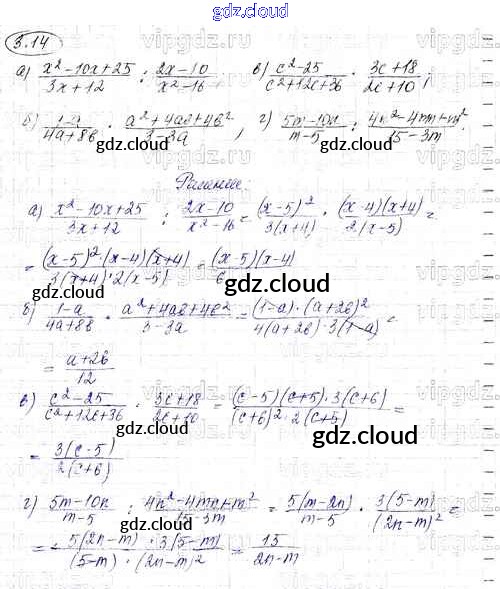 gdz.cloud
3.14
а) (x² - 10x + 25)/(3x + 12) : (2x - 10)/(x² - 16); в) (c² - 25)/(c² + 12c + 36) · (3c + 18)/(2c + 10);
б) (1 - a)/(4a + 8b) · (a² + 4ab + 4b²)/(3 - 3a); г) (5m - 10n)/(m - 5) : (4n² - 4mn + m²)/(15 - 3m).
Решение.
а) (x² - 10x + 25)/(3x + 12) : (2x - 10)/(x² - 16) = (x - 5)²/(3(x + 4)) · ((x - 4)(x + 4))/(2(x - 5)) =
= ((x - 5)² · (x - 4)(x + 4))/(3(x + 4) · 2(x - 5)) = ((x - 5)(x - 4))/6
б) (1 - a)/(4a + 8b) · (a² + 4ab + 4b²)/(3 - 3a) = ((1 - a) · (a + 2b)²)/(4(a + 2b) · 3(1 - a)) =
= (a + 2b)/12
в) (c² - 25)/(c² + 12c + 36) · (3c + 18)/(2c + 10) = ((c - 5)(c + 5) · 3(c + 6))/((c + 6)² · 2(c + 5)) =
= (3(c - 5))/(2(c + 6))
г) (5m - 10n)/(m - 5) : (4n² - 4mn + m²)/(15 - 3m) = (5(m - 2n))/(m - 5) · (3(5 - m))/((2n - m)²) =
= (5(2n - m) · 3(5 - m))/((5 - m) · (2n - m)²) = 15/(2n - m)